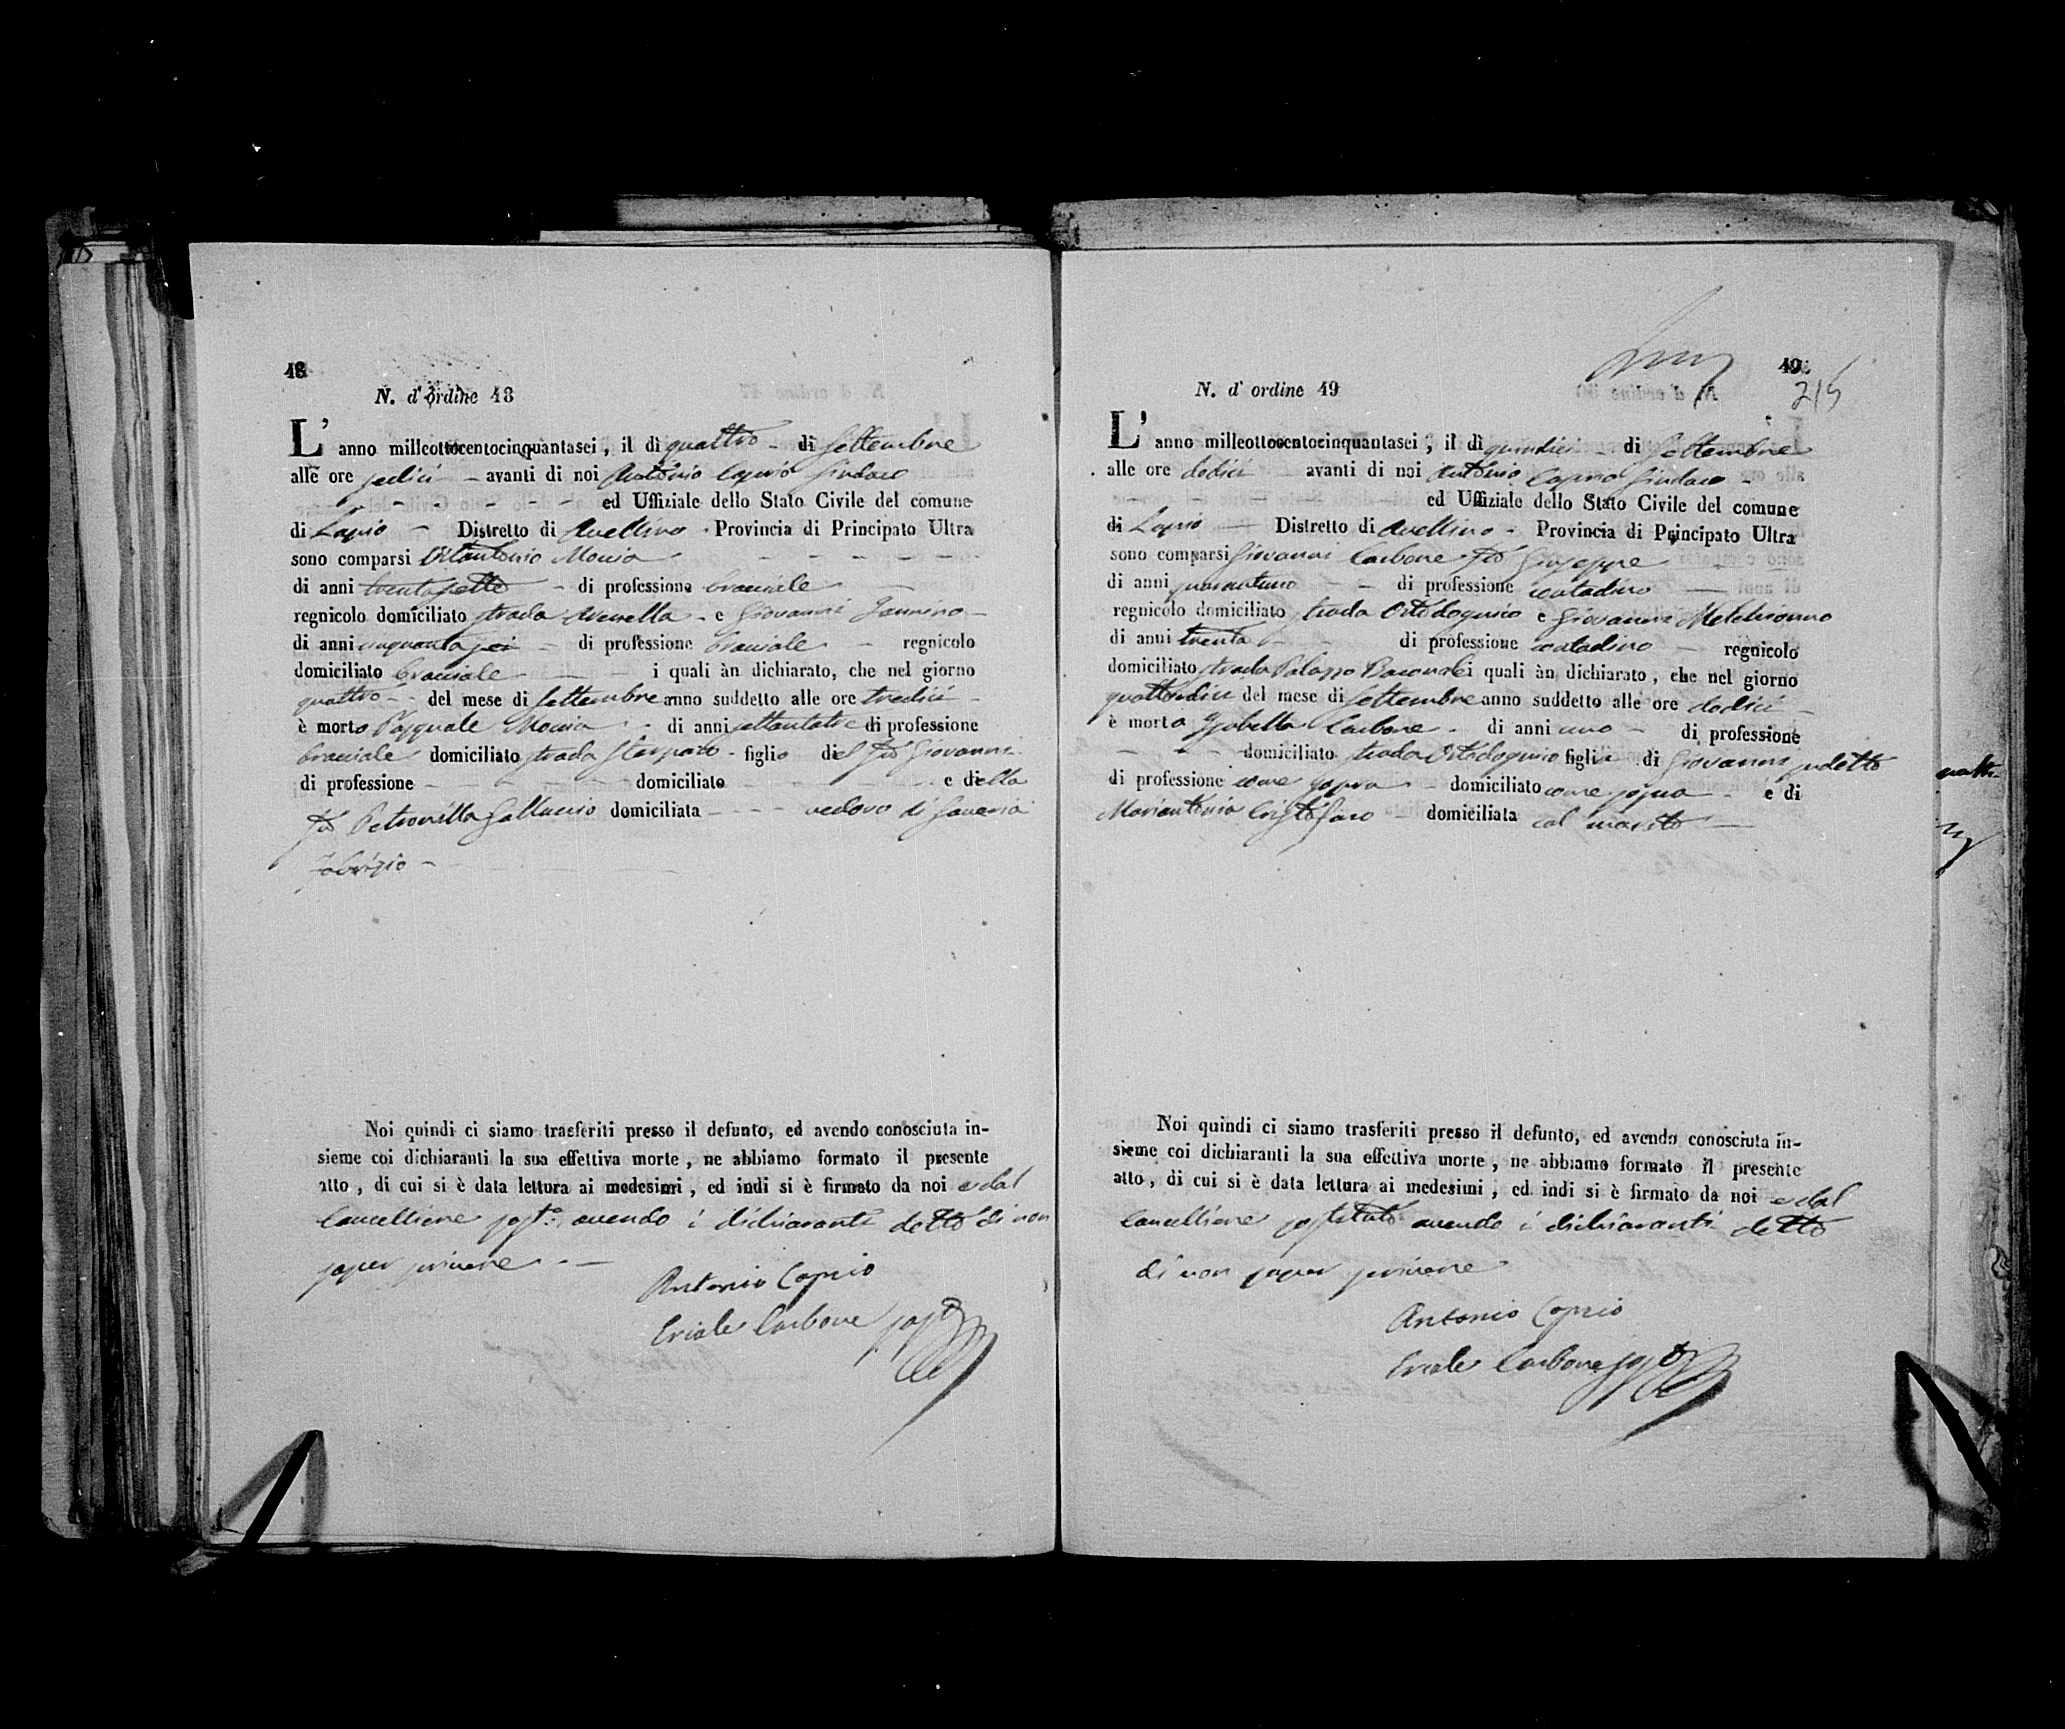 48
N. d' ordine 48
L' anno milleottocentocinquantasei, il dì quattro di Settembre
alle ore sedici avanti di noi Antonio Caprio Sindaco
ed Uffiziale dello Stato Civile del comune
di Lapio Distretto di Avellino Provincia di Principato Ultra
sono comparsi Vitantonio Moccia
di anni trentasette di professione bracciale
regnicolo domiciliato strada e Giovanni
di anni cinquantasei di professione bracciale regnicolo
domiciliato bracciale i quali àn dichiarato, che nel giorno
quattro del mese di Settembre anno suddetto alle ore tredici
è morto Pasquale Moccia di anni settantatre di professione
bracciale domiciliato strada figlio del fu Giovanni
di professione domiciliato e della
fu Petronilla Galluccio domiciliata vedovo di Saveria
Fabrizio
Noi quindi ci siamo trasferiti presso il defunto, ed avendo conosciuta in-
sieme coi dichiaranti la sua effettiva morte, ne abbiamo formato il presente
atto, di cui si è data lettura ai medesimi, ed indi si è firmato da noi e dal
Cancelliere sost.º avendo i dichiaranti detto di non
saper scrivere
Antonio Caprio
Carbone sost
49
215
N. d' ordine 49
L' anno milleottocentocinquantasei, il dì quindici di Settembre
alle ore dodici avanti di noi Antonio Caprio Sindaco
ed Uffiziale dello Stato Civile del comune
di Lapio Distretto di Avellino Provincia di Principato Ultra
sono comparsi Giovanni Carbone fu Giuseppe
di anni quarantuno di professione contadino
regnicolo domiciliato strada e Giovanni
di anni trenta di professione contadino regnicolo
domiciliato strada Palazzo Baronale i quali àn dichiarato, che nel giorno
quattordici del mese di Settembre anno suddetto alle ore dodici
è morta Isabella Carbone di anni uno di professione
domiciliato strada figlia di Giovanni sudetto
di professione come sopra domiciliato come sopra e di
Mariantonia Cristofaro domiciliata col marito
Noi quindi ci siamo trasferiti presso il defunto, ed avendo conosciuta in-
sieme coi dichiaranti la sua effettiva morte, ne abbiamo formato il presente
atto, di cui si è data lettura ai medesimi, ed indi si è firmato da noi e dal
Cancelliere sostituto avendo i dichiaranti detto
di non saper scrivere
Antonio Caprio
Carbone sost